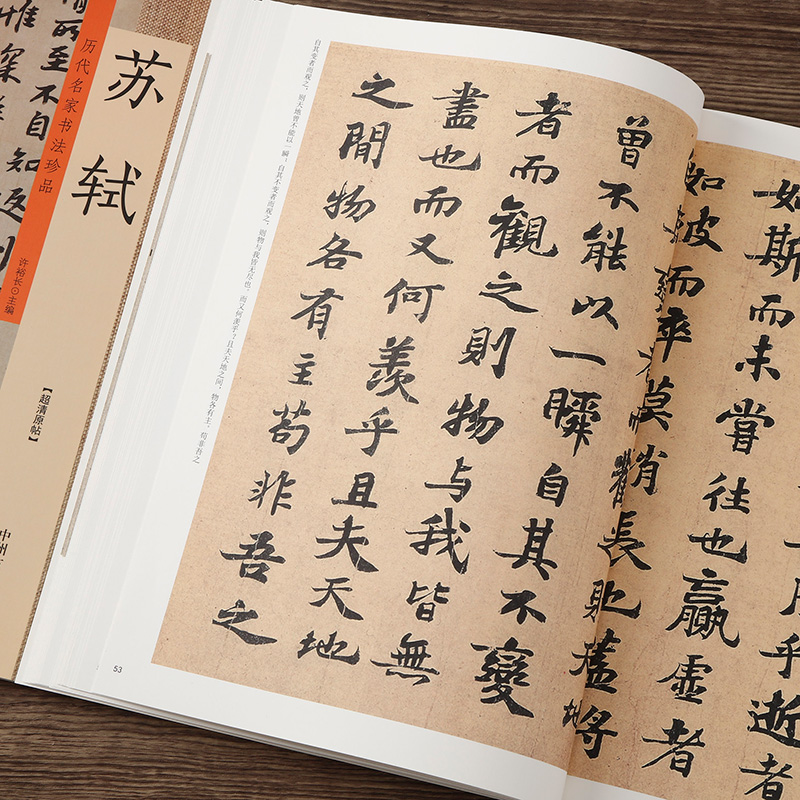 苏轼
历代名家书法珍品
许裕长⊙主编
【超清原帖】
中州
所至不自
知返
自其变者而观之,则天地曾不能以一瞬;自其不变者而观之,则物与我皆无尽也,而又何羡乎?且夫天地之间,物各有主,苟非吾之
53
乎逝者
如斯而未嘗往也贏虛者
如彼而卒莫消長也盖將
地
曾不能以一瞬自其不變
者而觀之則物与我皆無
盡也而又何羨乎且夫天地
之間物各有主苟非吾之